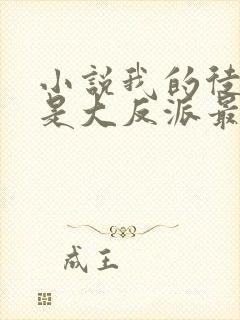 小説我的徒
是大反派最
成王